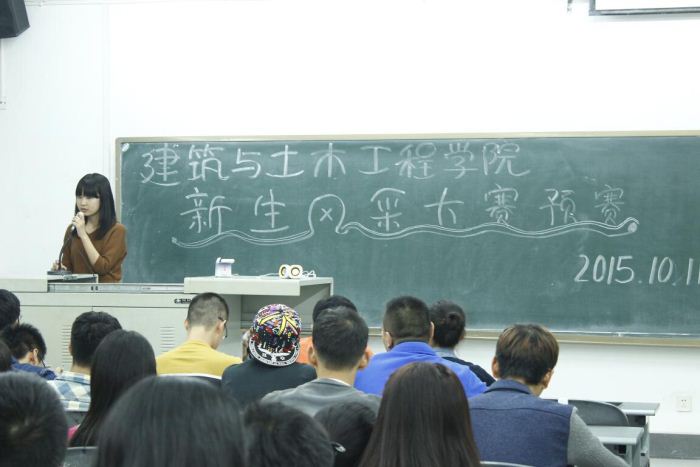 建筑与土木工程学院
新生风采大赛预赛
2015.10.11